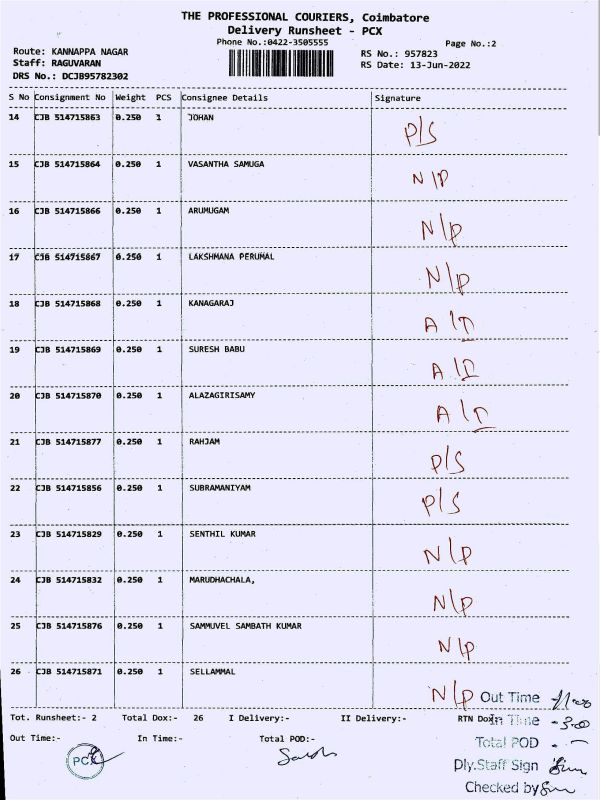 THE PROFESSIONAL COURIERS, Coimbatore
Delivery Runsheet - PCX
Phone No.:0422-3505555
Page No.:2
Route: KANNAPPA NAGAR
RS No.: 957823
Staff: RAGUVARAN
RS Date: 13-Jun-2022
DRS No.: DCJB95782302
S No Consignment No Weight PCS Consignee Details Signature
14 CJB 514715863 0.250 1 JOHAN P/S
15 CJB 514715864 0.250 1 VASANTHA SAMUGA N/P
16 CJB 514715866 0.250 1 ARUMUGAM N/P
17 CJB 514715867 0.250 1 LAKSHMANA PERUMAL N/P
18 CJB 514715868 0.250 1 KANAGARAJ A/I
19 CJB 514715869 0.250 1 SURESH BABU A/I
20 CJB 514715870 0.250 1 ALAZAGIRISAMY A/I
21 CJB 514715877 0.250 1 RAHJAM P/S
22 CJB 514715856 0.250 1 SUBRAMANIYAM P/S
23 CJB 514715829 0.250 1 SENTHIL KUMAR N/P
24 CJB 514715832 0.250 1 MARUDHACHALA, N/P
25 CJB 514715876 0.250 1 SAMMUVEL SAMBATH KUMAR N/P
26 CJB 514715871 0.250 1 SELLAMMAL N/P
Out Time
Tot. Runsheet:- 2 Total Dox:- 26 I Delivery:- II Delivery:- RTN Dox
In Time
Out Time:- In Time:- Total POD:-
Total POD
PCX
Dly.Staff Sign
Checked by